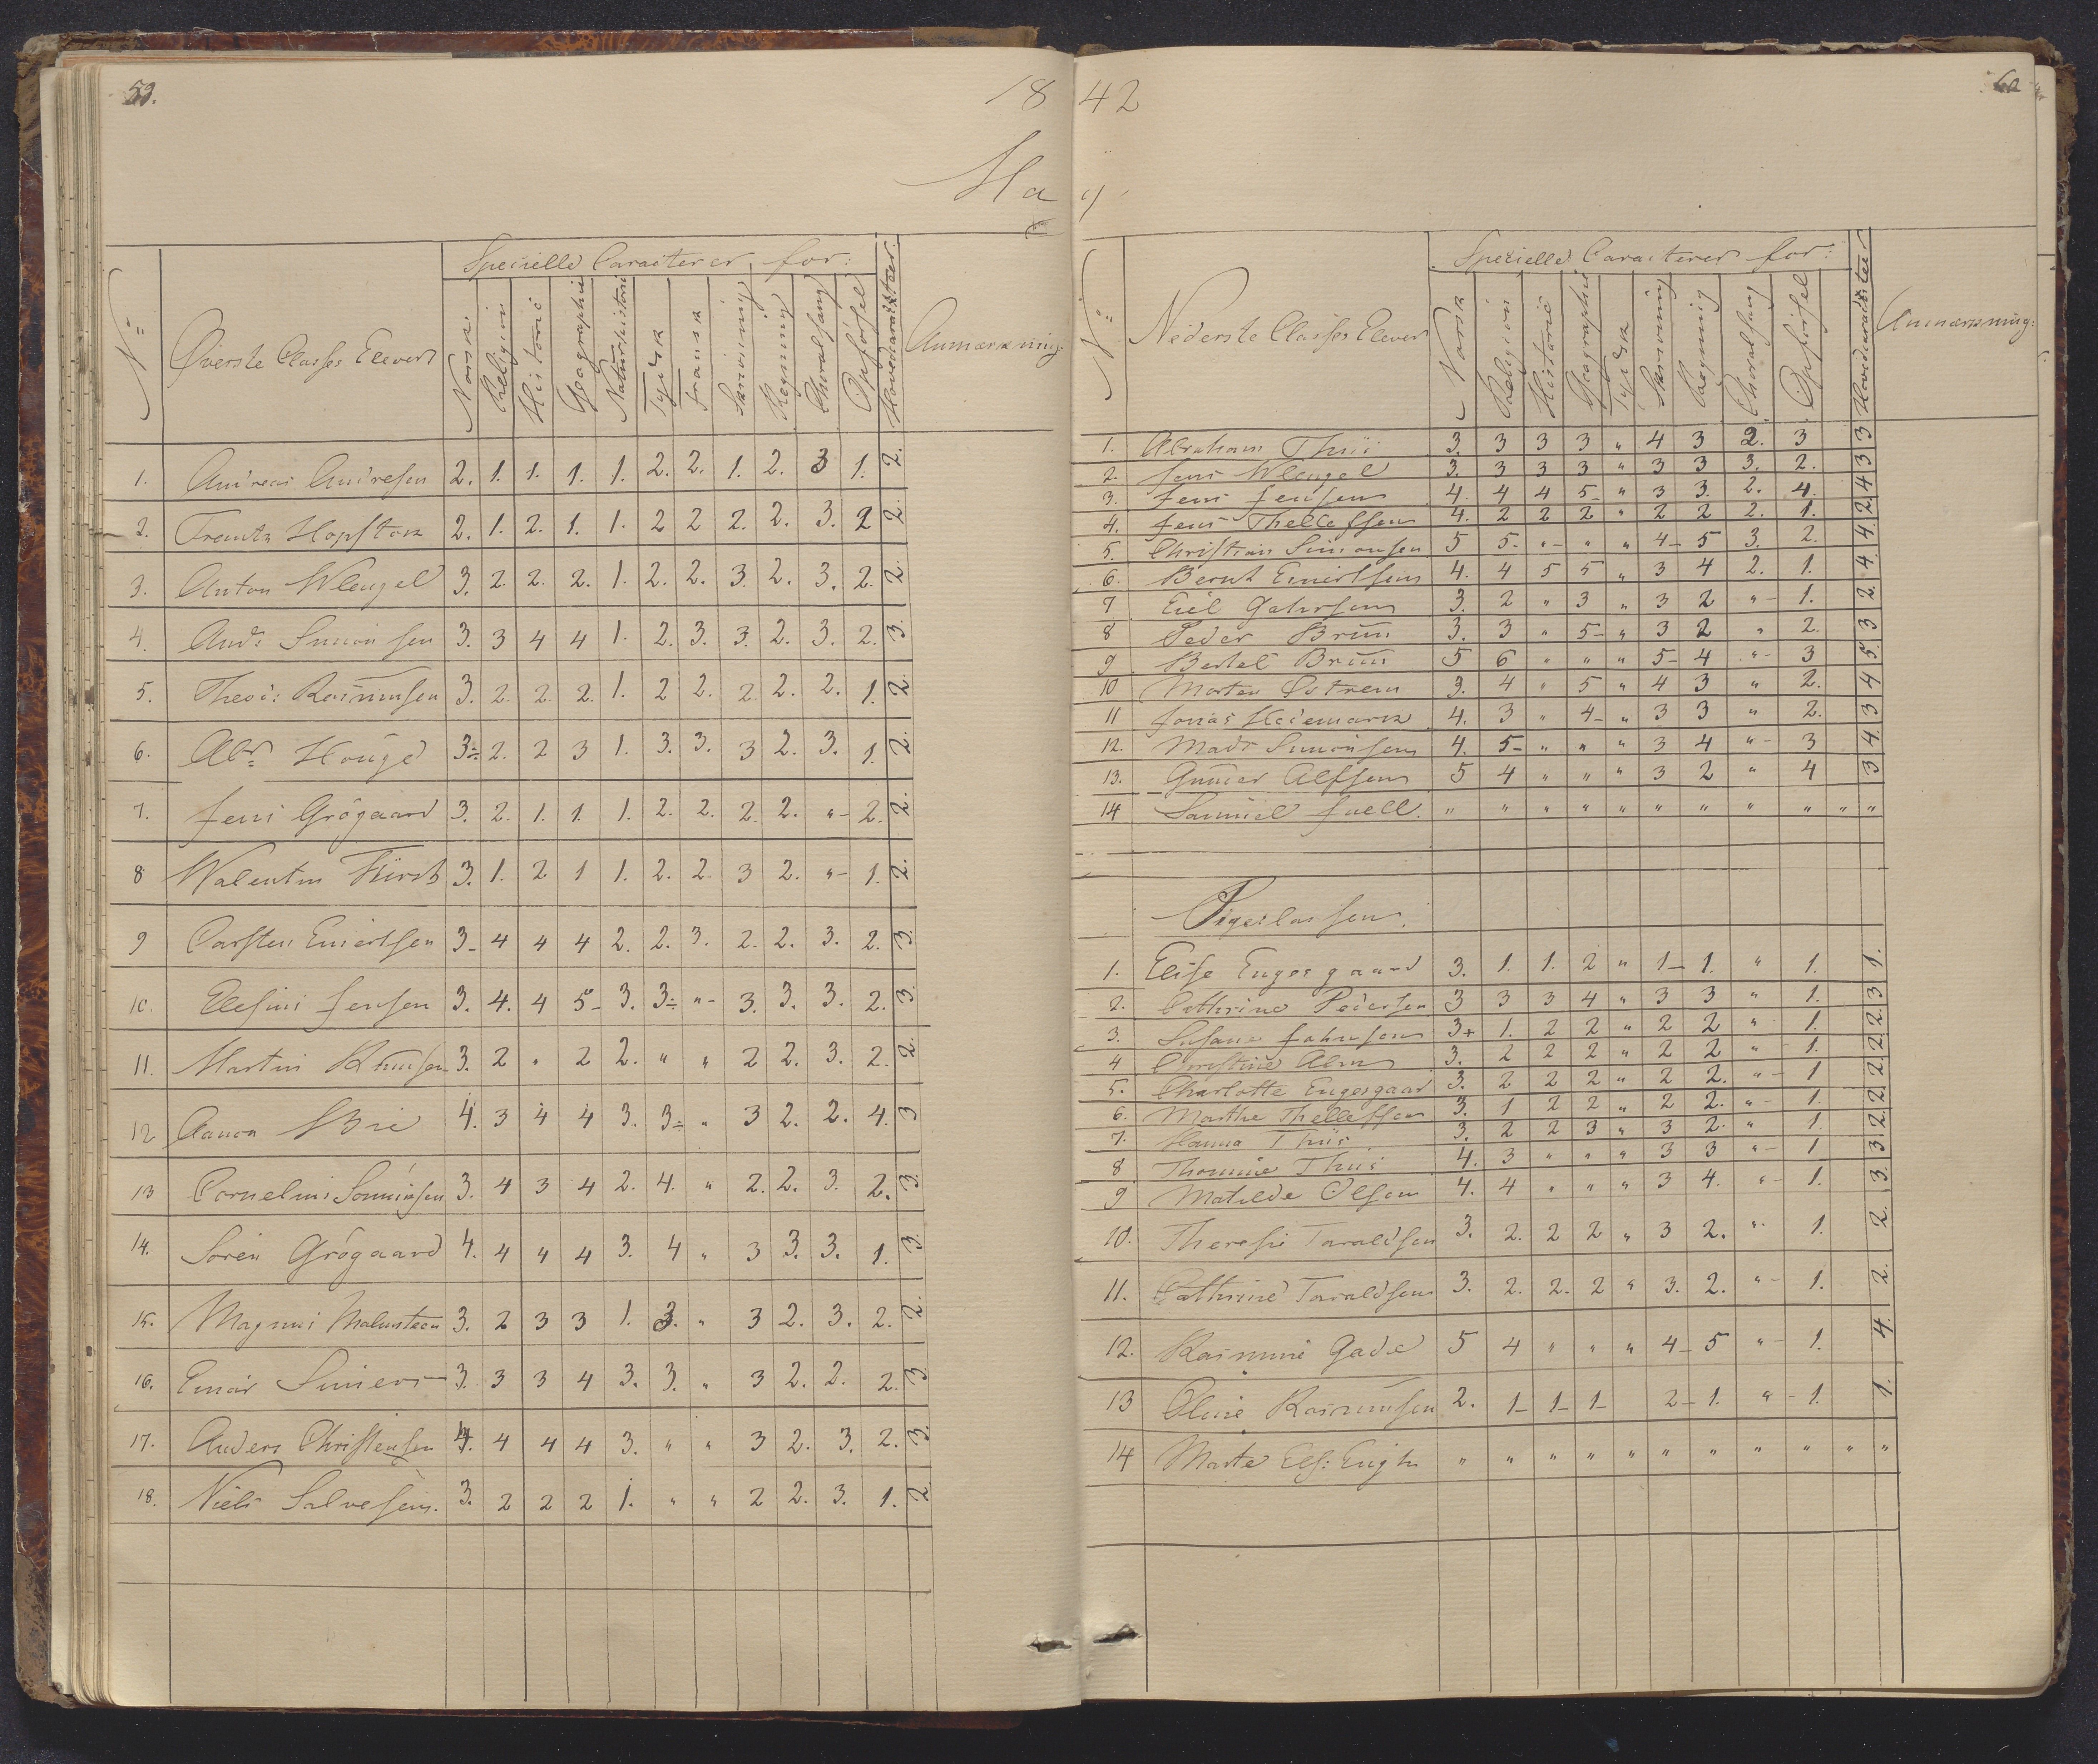 59.
18
Ma
Specielle Caracterer for:
No
Øverste Classes Elever
Norsk.
Religion
Historie
Geographie
Naturhistorie
Tydsk
Fransk
Skrivning
Regning
Choralsang
Opførsel
Hovedcarakteer.
Anmærkning:
1. Andreas Andresen 2. 1. 1. 1. 1. 2. 2. 1. 2. 3 1. 2.
2. Frantz Hopstok 2. 1. 2. 1. 1. 2 2 2. 2. 3. 2 2.
3. Anton Wleugel 3. 2. 2. 2. 1. 2. 2. 3. 2. 3. 2. 2.
4. And: Simonsen 3. 3 4 4 1. 2. 3. 3. 2. 3. 2. 3.
5. Theod: Rasmusen 3. 2. 2. 2. 1. 2 2. 2. 2. 2. 1. 2.
6. Abr. Houge 3÷ 2. 2 3 1. 3. 3. 3 2. 3. 1. 2.
7. Jens Grögaard 3. 2. 1. 1. 1. 2. 2. 2. 2. "- 2. 2.
8 Walentin Fürst 3. 1. 2 1 1. 2. 2. 3 2. "- 1. 2.
9 Carsten Enertsen 3- 4 4 4 2. 2. 3. 2. 2. 3. 2. 3.
10. Elesius Jensen 3. 4. 4 5- 3. 3÷ "- 3. 3. 3. 2. 3.
11. Martin Knusen 3. 2 " 2 2. " " 2 2. 3. 2. 2.
12 Aanon Brie 4. 3 4 4 3. 3÷ " 3 2. 2. 4. 3
13 Cornelius Sonnichsen 3. 4 3 4 2. 4. " 2. 2. 3. 2. 3.
14. Sören Grögaard 4. 4 4 4 3. 4 " 3 3. 3. 1. 3.
15. Magnus Malmsteen 3. 2 3 3 1. 3. " 3 2. 3. 2. 2.
16. Einar Siniers 3. 3 3 4 3. 3. " 3 2. 2. 2. 3.
17. Anders Christensen 4. 4 4 4 3. " " 3 2. 3. 2. 3.
18. Niels Salvesen. 3. 2 2 2 1. " " 2 2. 3. 1. 2.
42
60
y
Specielle Caracterer for:
No
Nederste Classes Elever
Norsk
Religion
Historie
Geographie
Tydsk
Skrivning
Regning
Choralsang
Opførsel
Hovedcarakteer
Anmærkning:
1. Abraham Thiis 3. 3 3 3 " 4 3 2. 3 3
2. Jens Wleugel 3. 3 3 3 " 3 3 3. 2. 3
3. Jens Jensen 4. 4 4 5- " 3 3. 2. 4. 4
4. Jens Thellefsen 4. 2 2 2 " 2 2 2. 1. 2.
5. Christian Simonsen 5 5- "- " " 4- 5 3. 2. 4.
6. Bernt Enertsen 4. 4 5 5 " 3 4 2. 1. 4.
7 Eiel Gahrsen 3. 2 " 3 " 3 2 "- 1. 2.
8 Peder Bruun 3. 3 " 5- " 3 2 " 2. 3
9 Bertel Bruun 5 6 " " " 5- 4 "- 3 5.
10 Morten Østrem 3. 4 " 5 " 4 3 " 2. 4
11 Jonas Hedemark 4. 3 " 4- " 3 3 " 2. 3
12. Mads Simonsen 4. 5- " " " 3 4 "- 3 4.
13. Gunder Alfsen 5 4 " " " 3 2 " 4 3
14 Samuel Juell. " " " " " " " " " " "
Pigeclassen.
1. Elise Engesgaard 3. 1. 1. 2 " 1- 1. " 1. 1.
2. Cathrine Pedersen 3 3 3 4 " 3 3 " 1. 3
3. Susane Johnsen 3+ 1. 2 2 " 2 2 " 1. 2.
4 Christine Alm 3. 2 2 2 " 2 2 "- 1. 2.
5. Charlotte Engesgaard 3. 2 2 2 " 2 2. "- 1 2.
6. Marthe Thellefsen 3. 1 2 2 " 2 2. "- 1. 2.
7. Hanna Thiis 3. 2 2 3 " 3 2. " 1. 2.
8 Thomine Thiis 4. 3 " " " 3 3 "- 1 3
9 Matilde Olsen 4. 4 " " " 3 4. "- 1. 3.
10. Therese Taraldsen 3. 2. 2 2 " 3 2. " 1. 2.
11. Cathrine Taraldsen 3. 2. 2. 2 " 3. 2. "- 1. 2.
12. Rasmine Gade 5 4 " " " 4- 5 "- 1. 4.
13 Oline Rasmusen 2. 1- 1- 1- 2- 1. "- 1. 1.
14 Marte Els: Eugh " " " " " " " " " " "